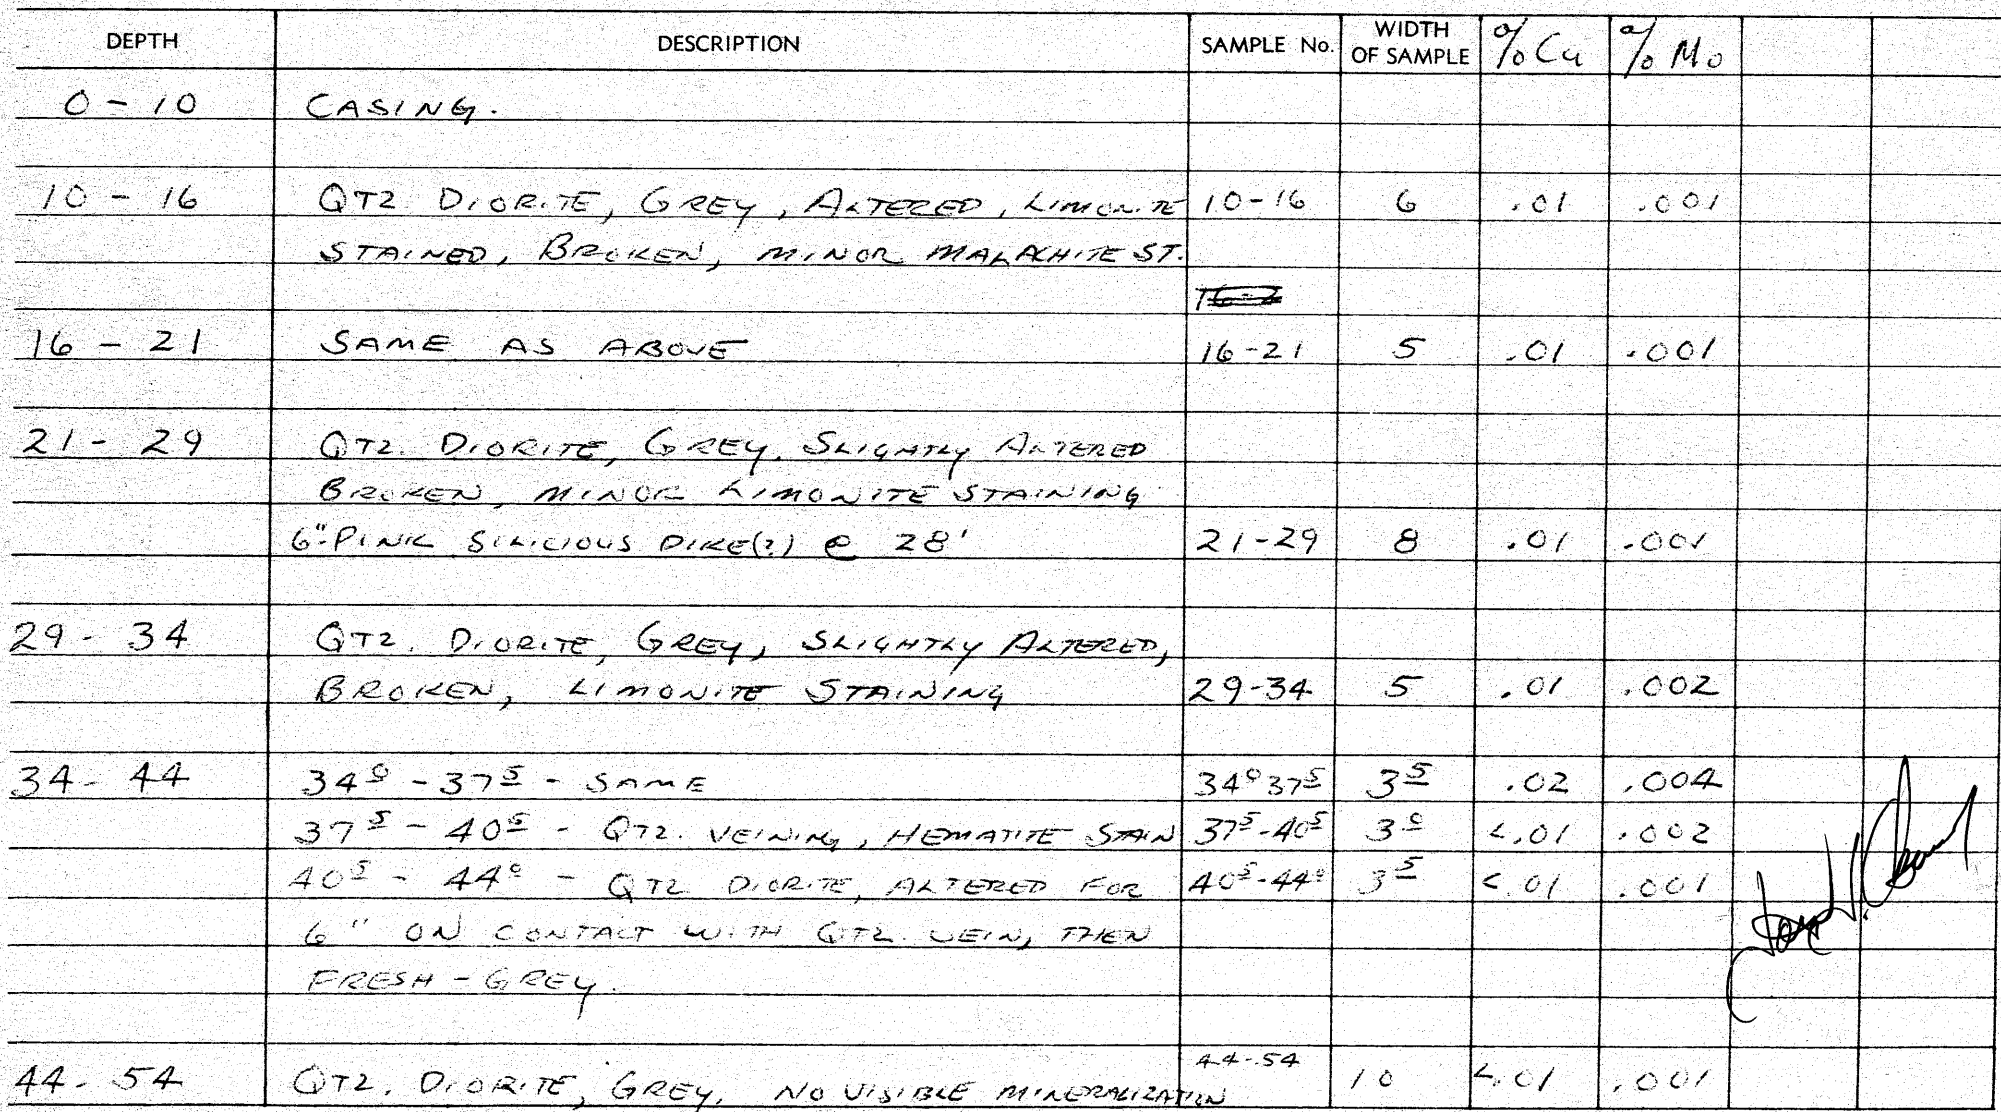 DEPTH DESCRIPTION SAMPLE No. WIDTH OF SAMPLE % Cu % Mo
0 - 10 CASING.
10 - 16 QTZ DIORITE, GREY, ALTERED, LIMONITE 10-16 6 .01 .001
STAINED, BROKEN, MINOR MALACHITE ST.
16-2
16 - 21 SAME AS ABOVE 16-21 5 .01 .001
21 - 29 QTZ. DIORITE, GREY. SLIGHTLY ALTERED
BROKEN, MINOR LIMONITE STAINING
6" PINK SILICIOUS DIKE(?) @ 28' 21-29 8 .01 .001
29 - 34 QTZ. DIORITE, GREY, SLIGHTLY ALTERED,
BROKEN, LIMONITE STAINING 29-34 5 .01 .002
34 - 44 34⁰ - 37⁵ - SAME 34⁰ 37⁵ 3⁵ .02 .004
37⁵ - 40⁵ - QTZ. VEINING, HEMATITE STAIN 37⁵-40⁵ 3⁰ <.01 .002
40⁵ - 44⁰ - QTZ DIORITE, ALTERED FOR 40⁵-44⁰ 3⁵ <.01 .001
6" ON CONTACT WITH QTZ. VEIN, THEN
FRESH - GREY.
44 - 54 QTZ. DIORITE, GREY. NO VISIBLE MINERALIZATION 44-54 10 <.01 .001